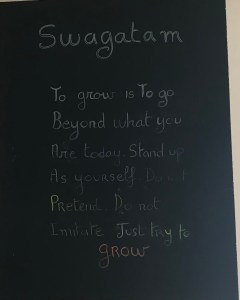 Swagatam
To grow is To go
Beyond what you
Are today. Stand up
As yourself. Do not
Pretend. Do not
Imitate. Just try to
grow